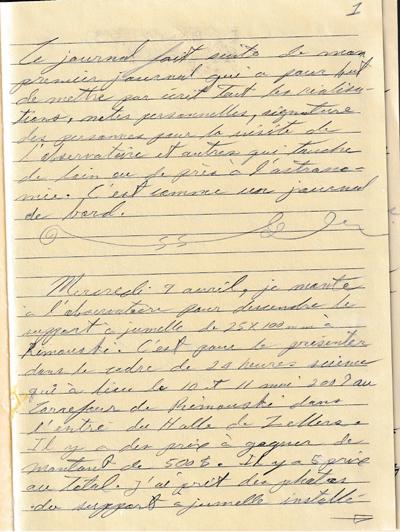 1
Ce journal fait suite de mon
premier journal qui a pour but
de mettre par écrit tout les réalisa-
tions, notes personnelles, signature
des personnes pour la visite de
l'observatoire et autres qui touche
de loin ou de près à l'astrono-
mie. C'est comme un journal
de bord.
Mercredi 9 avril, je monte
à l'observatoire pour descendre le
support à jumelle de 25X100mm à
Rimouski. C'est pour le présenter
dans le cadre de 24 heures science
qui à lieu le 10 et 11 mai au
Carrefour de Rimouski dans
l'entré du Halle de Zellers.
Il y a des prix à gagner de
montant de 500$. Il y a 5 prix
au total. J'ai prit des photos
du support à jumelle installé